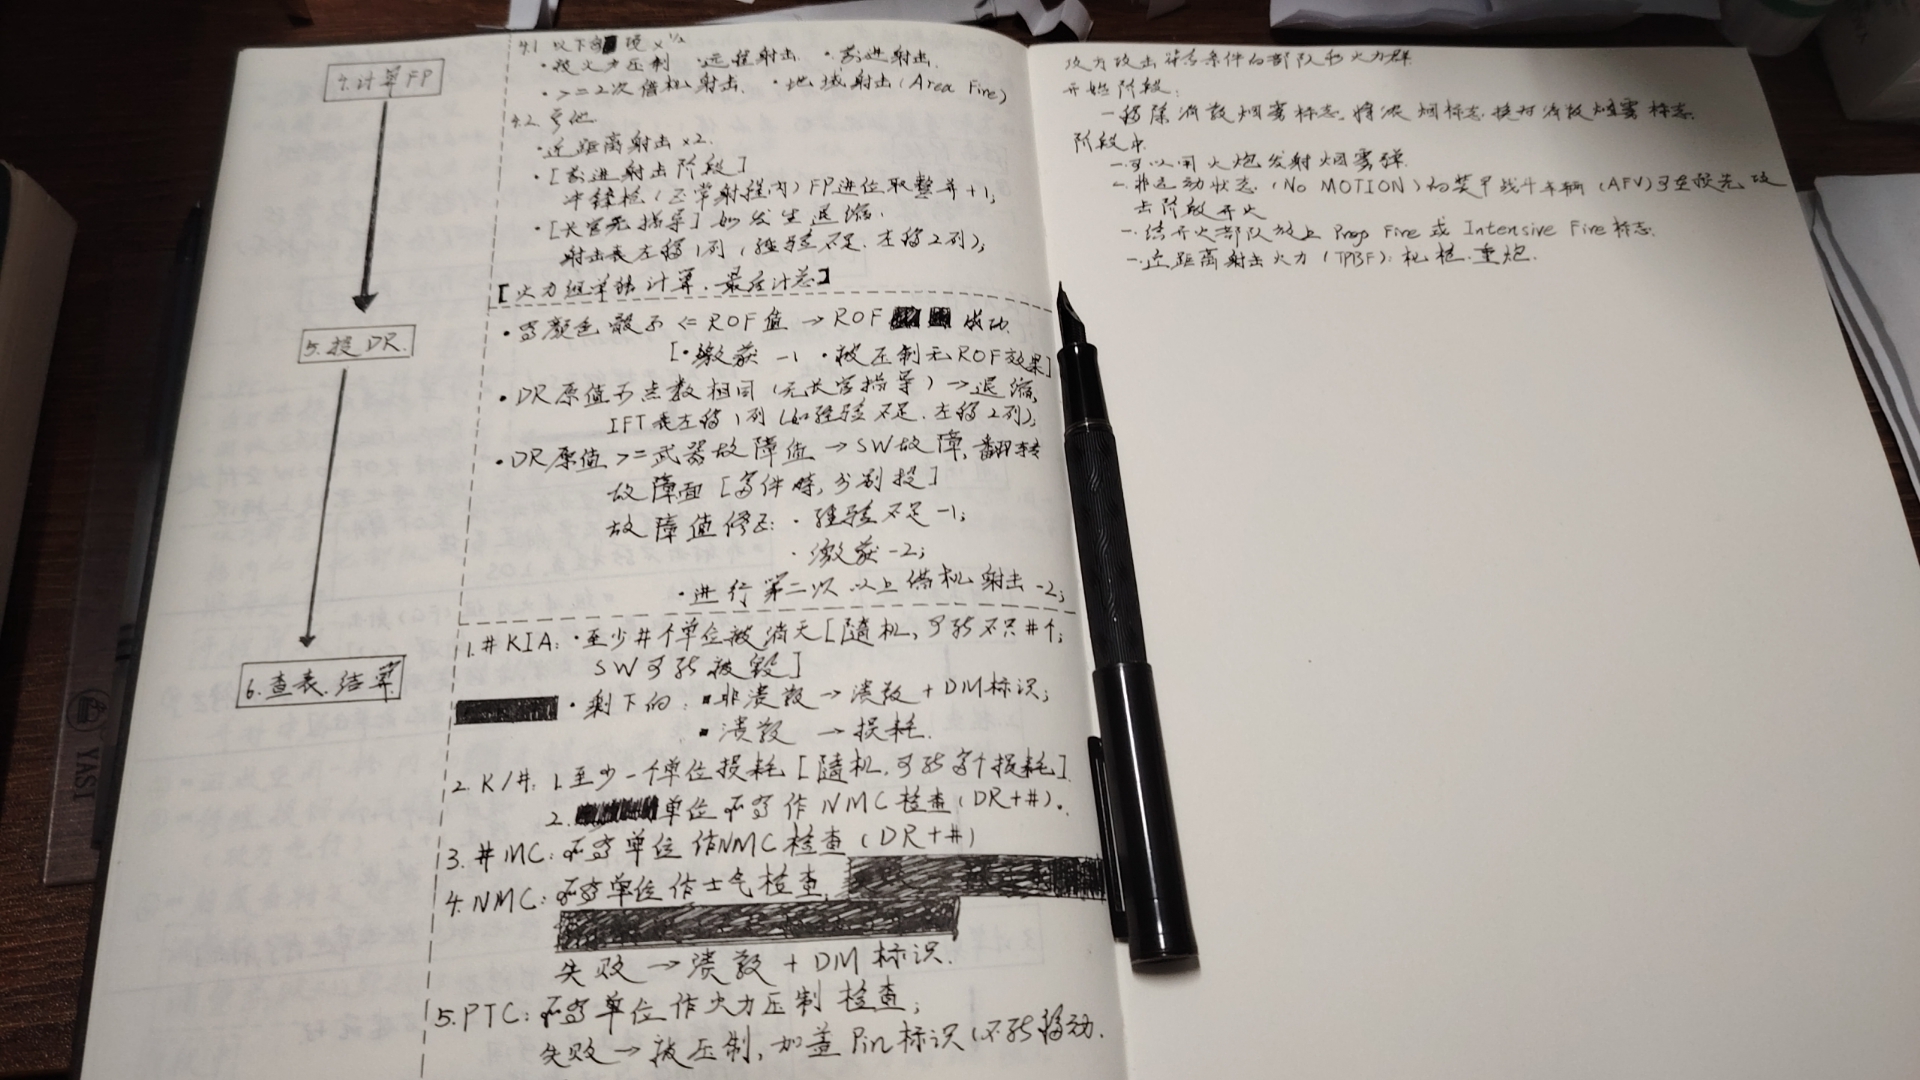 4.计算FP
4.1 以下各项×½
·被火力压制 ·远程射击 ·前进射击
·>=2次借机射击 ·地域射击(Area Fire)
4.2 其他
·近距离射击×2.
·[前进射击阶段]
冲锋枪(正常射程内)FP进位取整并+1;
·[长官无指导]如发生退缩.
射击表左移1列(经验不足.左移2列);
[火力组单独计算.最后计总]
5.投DR.
·有颜色骰子<=ROF值→ROF 成功.
[·缴获-1 ·被压制无ROF效果]
·DR原值 点数相同(无长官指导)→退缩,
IFT表左移1列(如经验不足.左移2列);
·DR原值>=武器故障值→SW故障,翻转
故障面[多件时,分别投]
故障值修正:·经验不足-1;
·缴获-2;
·进行第二次以上借机射击-2;
6.查表.结算
1.#KIA:·至少#个单位被消灭[随机,可能不只#个;
SW可能被毁]
·剩下的:▪非溃散→溃散+DM标识;
▪溃散→损耗.
2.K/#:1.至少一个单位损耗[随机.可能多个损耗]
2.单位 作NMC检查(DR+#).
3.#MC:所有单位作NMC检查(DR+#)
4.NMC:所有单位作士气检查.
失败→溃散+DM标识.
5.PTC:所有单位作火力压制检查;
失败→被压制,加盖Pin标识(不能移动.
攻方攻击符合条件的部队和火力群
开始阶段:
-移除消散烟雾标志.将浓烟标志换为消散烟雾标志.
阶段中
-可以用火炮发射烟雾弹.
-非运动状态(No MOTION)的装甲战斗车辆(AFV)可在预先攻
击阶段开火
-.给开火部队放上Prep Fire或Intensive Fire标志.
-.近距离射击火力(TPBF):机枪.重炮.
YAST